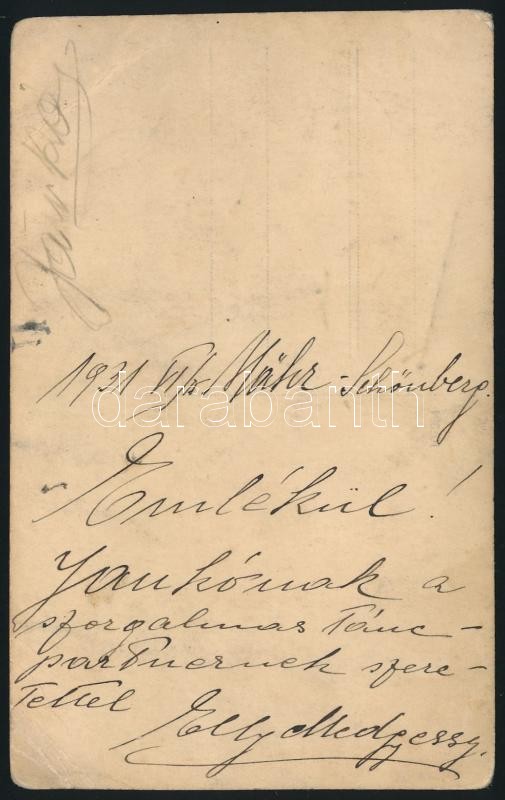 Jankó
1931 Mähr-Schönberg.
Emlékül!
Jankónak a
szorgalmas tánc-
partnernek szere-
tettel
Elly Medgyessy.
darabanth.com